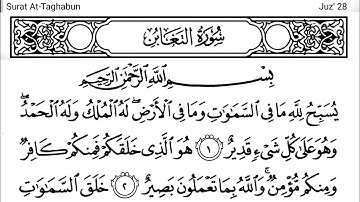 Surat At-Taghabun Juz' 28
سُورَةُ التَّغَابُنِ
بِسْمِ اللَّهِ الرَّحْمَٰنِ الرَّحِيمِ
يُسَبِّحُ لِلَّهِ مَا فِي السَّمَاوَاتِ وَمَا فِي الْأَرْضِ ۖ لَهُ الْمُلْكُ وَلَهُ الْحَمْدُ ۖ
وَهُوَ عَلَىٰ كُلِّ شَيْءٍ قَدِيرٌ ١ هُوَ الَّذِي خَلَقَكُمْ فَمِنكُمْ كَافِرٌ
وَمِنكُم مُّؤْمِنٌ ۚ وَاللَّهُ بِمَا تَعْمَلُونَ بَصِيرٌ ٢ خَلَقَ السَّمَاوَاتِ